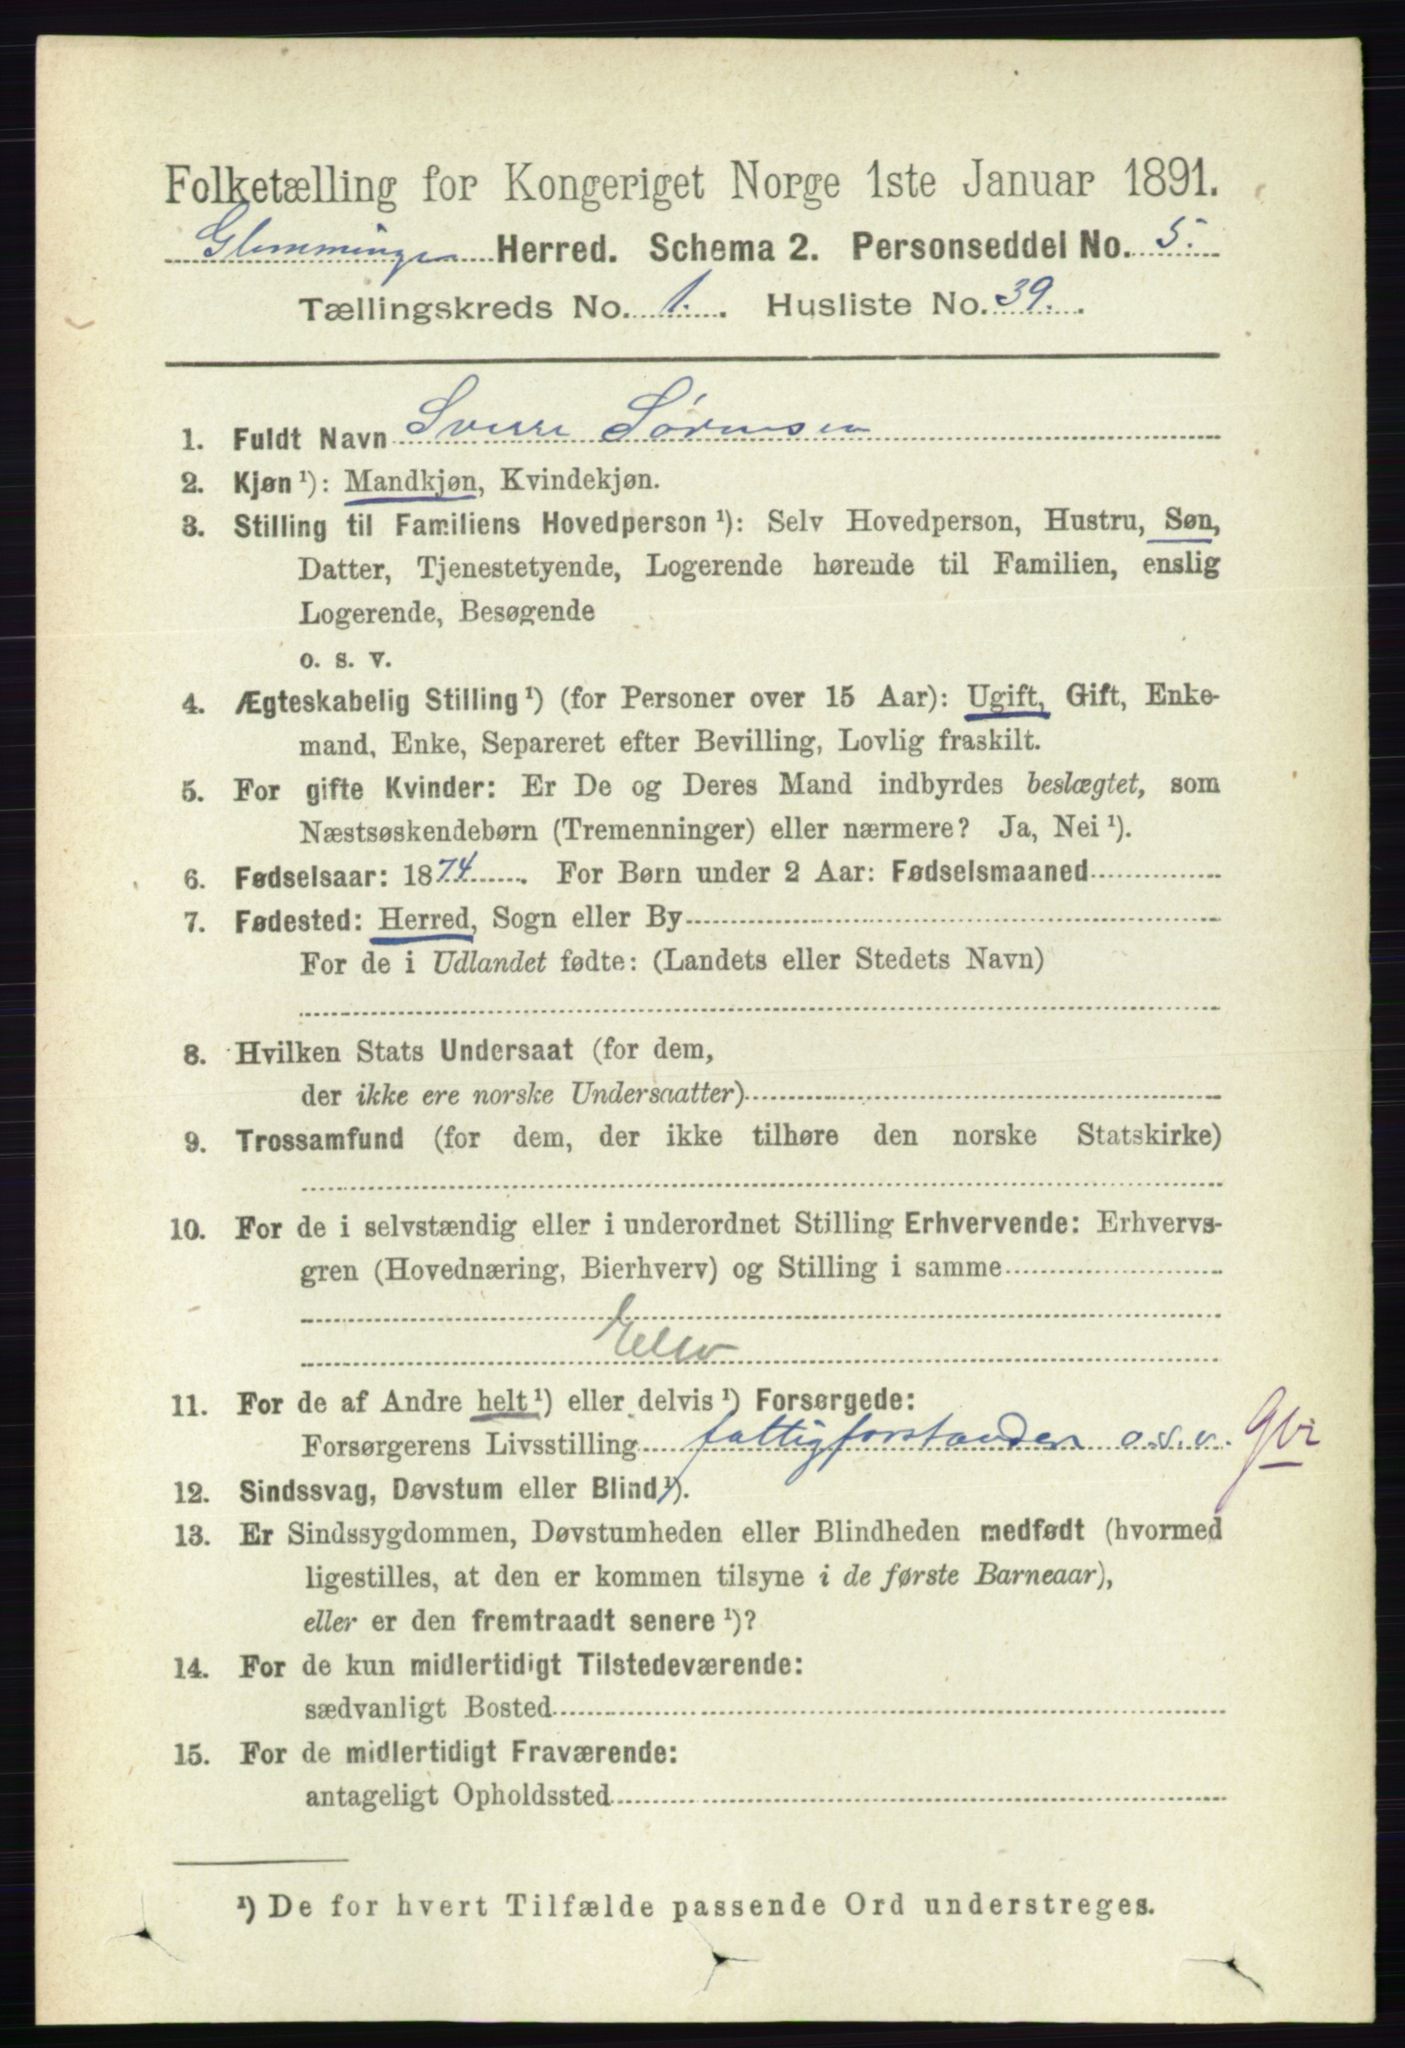 Folketælling for Kongeriget Norge 1ste Januar 1891.
Glemminge Herred. Schema 2. Personseddel No. 5.
Tællingskreds No. 1. Husliste No. 39.
1. Fuldt Navn Sverre Sørensen
2. Kjøn ¹): Mandkjøn, Kvindekjøn.
3. Stilling til Familiens Hovedperson ¹): Selv Hovedperson, Hustru, Søn,
Datter, Tjenestetyende, Logerende hørende til Familien, enslig
Logerende, Besøgende
o. s. v.
4. Ægteskabelig Stilling ¹) (for Personer over 15 Aar): Ugift, Gift, Enke-
mand, Enke, Separeret efter Bevilling, Lovlig fraskilt.
5. For gifte Kvinder: Er De og Deres Mand indbyrdes beslægtet, som
Næstsøskendebørn (Tremenninger) eller nærmere? Ja, Nei ¹).
6. Fødselsaar: 1874. For Børn under 2 Aar: Fødselsmaaned
7. Fødested: Herred, Sogn eller By
For de i Udlandet fødte: (Landets eller Stedets Navn)
8. Hvilken Stats Undersaat (for dem,
der ikke ere norske Undersaatter)
9. Trossamfund (for dem, der ikke tilhøre den norske Statskirke)
10. For de i selvstændig eller i underordnet Stilling Erhvervende: Erhvervs-
gren (Hovednæring, Bierhverv) og Stilling i samme
Elev
11. For de af Andre helt ¹) eller delvis ¹) Forsørgede:
Forsørgerens Livsstilling fattigforstander o.s.v.
12. Sindssvag, Døvstum eller Blind ¹).
13. Er Sindssygdommen, Døvstumheden eller Blindheden medfødt (hvormed
ligestilles, at den er kommen tilsyne i de første Barneaar),
eller er den fremtraadt senere ¹)?
14. For de kun midlertidigt Tilstedeværende:
sædvanligt Bosted
15. For de midlertidigt Fraværende:
antageligt Opholdssted
¹) De for hvert Tilfælde passende Ord understreges.